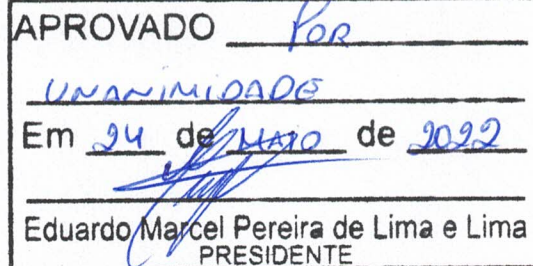 APROVADO POR
UNANIMIDADE
Em 24 de MAIO de 2022
Eduardo Marcel Pereira de Lima e Lima
PRESIDENTE